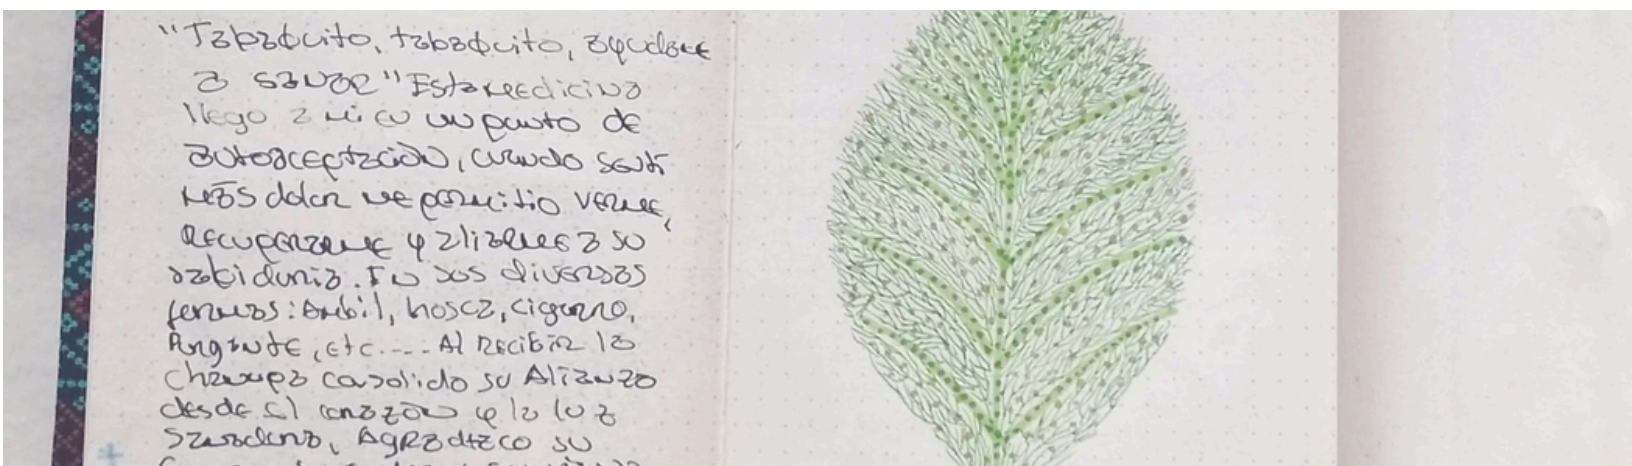 "Tabaquito, tabaquito, ayudame
a sanar" Esta medicina
llego a mi en un punto de
autoaceptación, cuando sentí
más dolor me permitio verme,
recuperarme y aliarme a su
sabiduria. En sus diversas
formas: Ambil, hosca, cigarro,
Purgante, etc.... Al recibir la
chanupa consolido su Alianza
desde el corazón y la luz
sanadora, Agradezco su